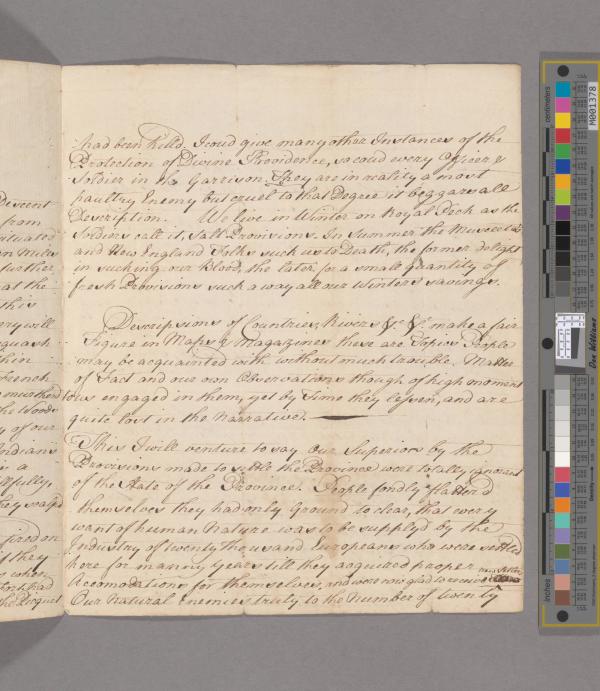 Descent
from
situated
on Miles
further
at the
this
ery will
quash
thin
French
murtherd
the Woods
y of our
Indians
is a
illfully,
they scalp'd
fired on
if they
s when
the Picquet
had been killd. I coud give many other Instances of the
Protection of Divine Providence, so coud every Officer &
Soldier in the Garrison. They are in reality a most
paultry Enemy but cruel to that Degree it beggars all
Description. We live in Winter on Royal Pork as the
Soldiers call it, Salt Provisions. In Summer the Muscetas
and New England Folks suck us to Death, the former delight
in sucking our Blood, the later for a small quantity of
fresh Provisions suck away all our Winters savings.
Descriptions of Countries, Rivers &c &c. make a fair
Figure in Maps & Magazines these are Topics People
may be acquainted with without much trouble. Matter
of Fact and our own Observations though of high moment
to us engaged in them, yet by Time they lessen, and are
quite lost in the Narrative.
This I will venture to say Our Superiors by the
Provisions made to settle the Province were totally ignorant
of the State of the Province. People fondly flatter'd
themselves they had only Ground to clear, that every
want of human Nature was to be supply'd by the
Industry of twenty thousand Europeans who were settled
here for manny Years till they acquired proper
Accomodations for themselves, and were now glad to receive new Settlers
Our natural enemies truly to the Number of twenty
centimetres
M001378
Don Williams
Density
inches